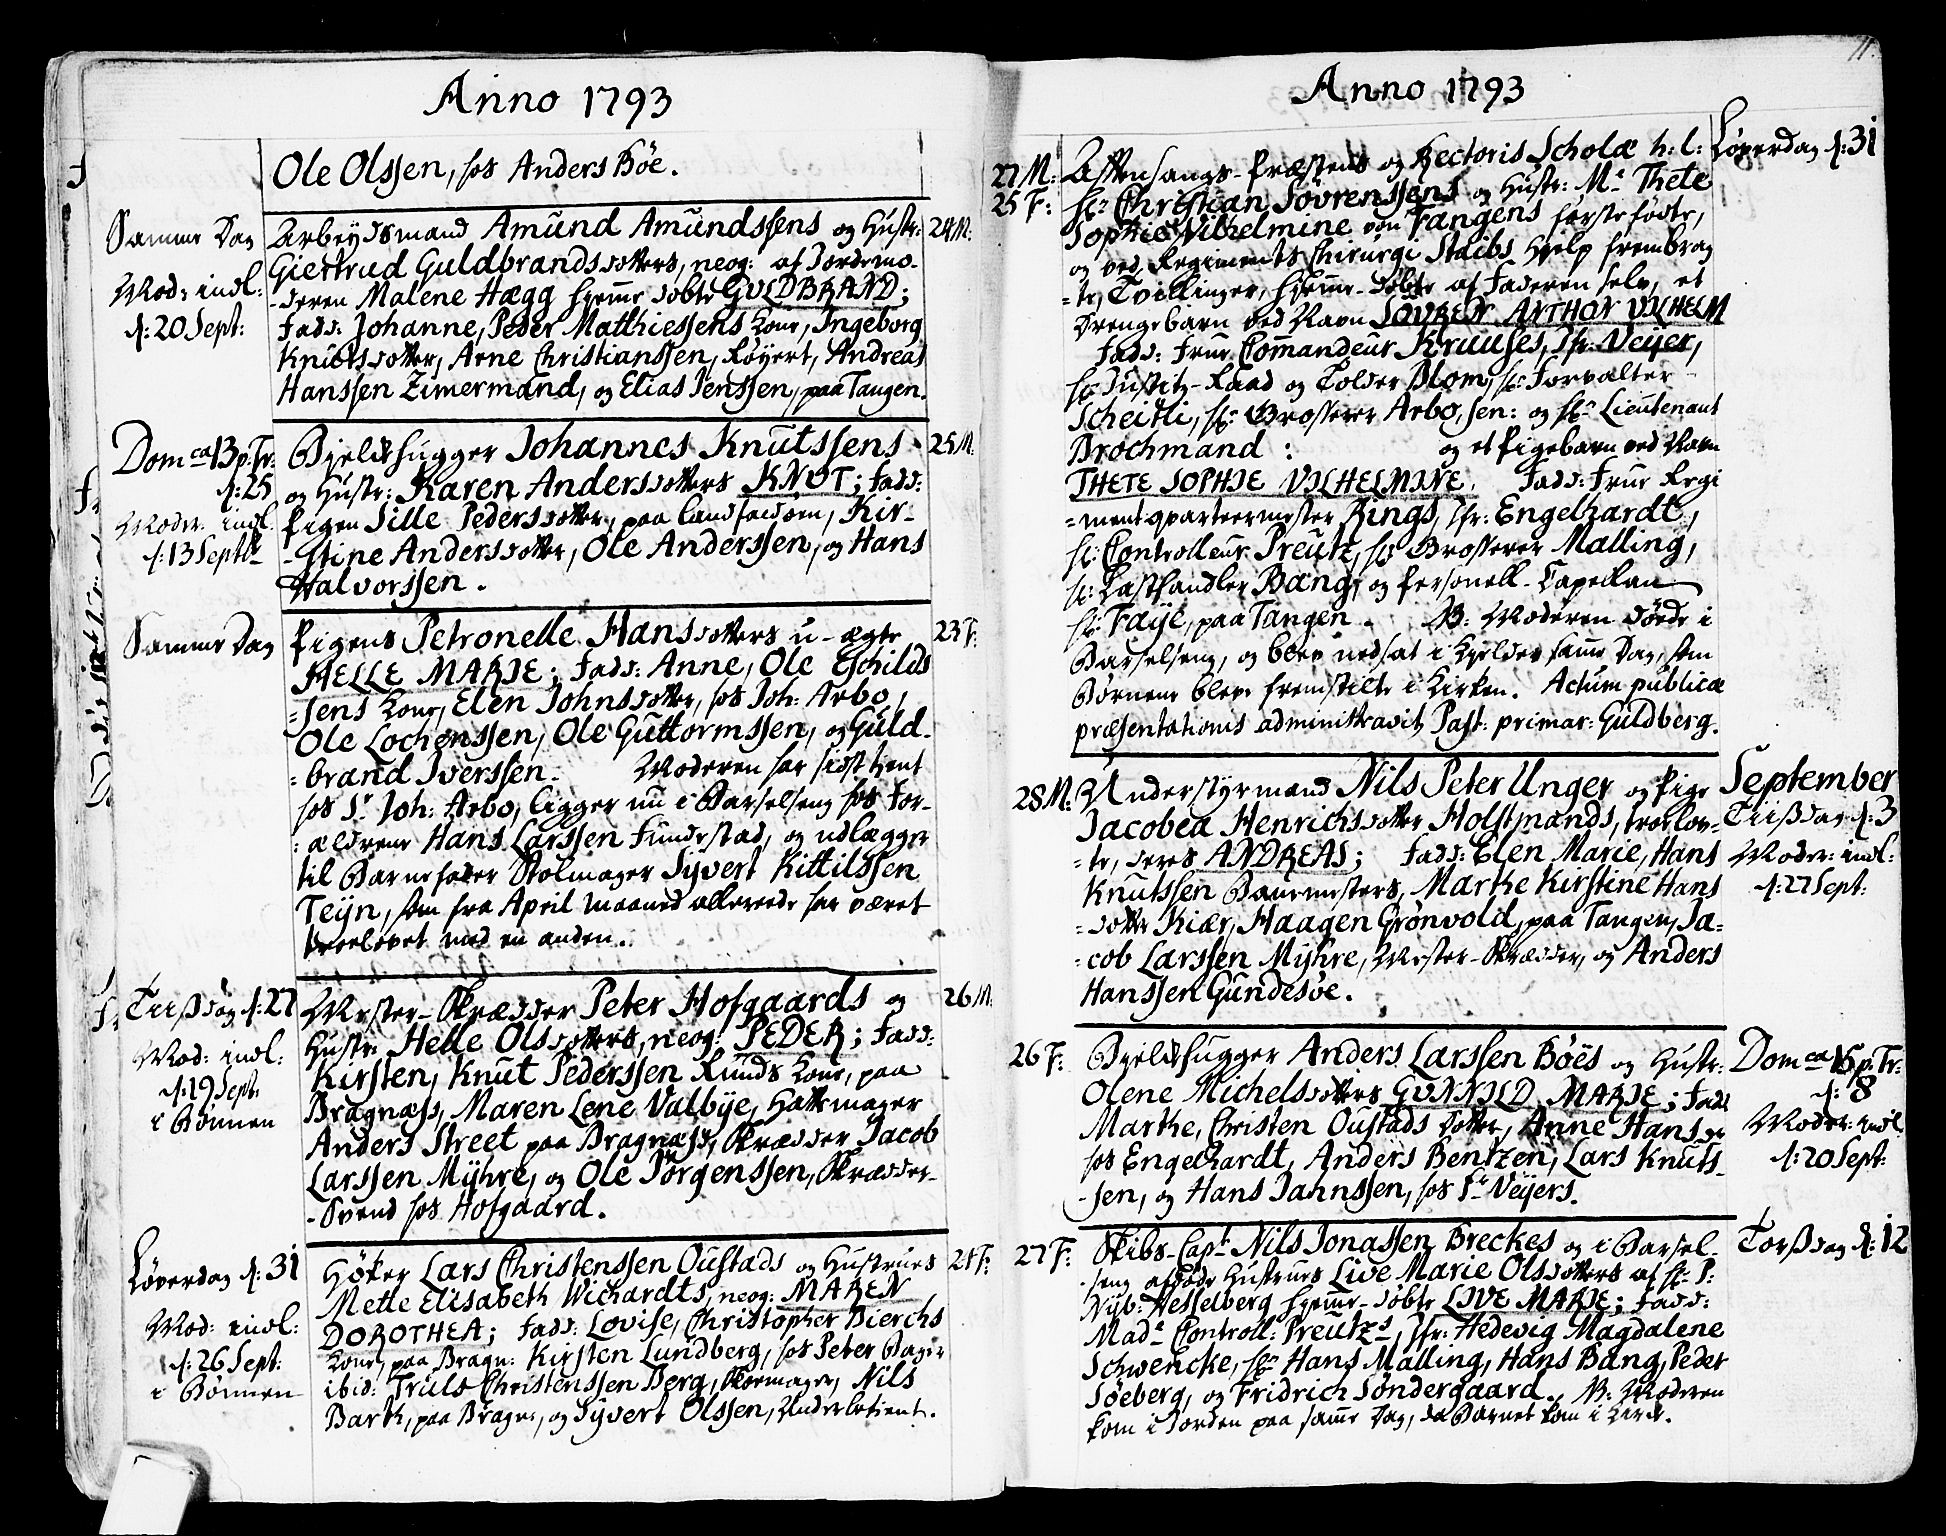 Anno 1793
Ole Olssen, hos Anders Böe.
Samme Dag
Mod: indl:
d: 20 Sept:
Arbeydsmand Amund Amundssens og Hustr: 24 M:
Giertrud Guldbrandsdotters, neog: af Jordemo-
-deren Malene Hægg hjemme døbte GULDBRAND;
Fadd: Johanne, Peder Matthiessens Kone, Ingeborg
Knutsdotter, Arne Christianssen, Røyert, Andreas
Hanssen Zimermand, og Elias Jenssen, paa Tangen.
Dom ca 13 p. Tr:
d: 25
Moder: indl.
d: 13 Septbr
Bjelkhugger Johannes Knutssens 25 M:
og Hustr: Karen Andersdotters KNUT; Fadd:
Pigen Sille Pedersdotter, paa Landfaldöen, Kir-
-stine Andersdotter, Ole Anderssen, og Hans
Halvorssen.
Samme Dag
Pigens Petronelle Hansdotters u-ægte 23 F:
HELLE MARIE; Fadd: Anne, Ole Eschilds
-sens Kone, Elen Johnsdotter, hos Joh: Arbo,
Ole Lochenssen, Ole Guttormssen, og Guld-
-brand Iverssen. Moderen har sidst tient
hos Sr Joh: Arbo, ligger nu i Barselseng hos For-
-ældrene Hans Larssen Fundestad, og udlægger
til Barnefader Stolmager Syvert Kittilssen
Teÿn, som fra April Maaned allerede har været
troelovet med en anden.
Tiissdag d: 27
Mod: indl:
d: 19 Sept:
i Bönnen
Mester-Skrædder Peter Hofgaards og 26 M:
Hustr: Helle Olsdotters, neog: PEDER; Fadd:
Kirsten, Knut Pederssen Runds Kone, paa
Bragnæss, Maren Lene Valbÿe, Hattemager
Anders Street paa Bragnæss, Skrædder Jacob
Larssen Mÿhre, og Ole Jörgenssen, Skrædder-
-Svend hos Hofgaard.
Löverdag d: 31
Mod: indl:
d: 26 Sept:
i Bönnen
Höker Lars Christenssen Oustads og Hustrues 24 F:
Mette Elisabeth Wichardts, neog: MAREN
DOROTHEA; Fadd: Lovise, Christopher Bierchs
Kone, paa Bragn: Kirsten Lundberg, hos Peter Bager
ibid: Truls Christenssen Berg, Skomager, Nils
Bark, paa Bragn:, og Syvert Olssen, Underbetient.
11.
Anno 1793
27 M:
25 F:
Aftensangs-Præstens og Rectoris Scholæ h: l: Löverdag d: 31
Hr: Christian Sövrenssens og Hustr: Me Thete
Sophie Vilhelmine von Fangens förstefödte,
og ved Regiments Chirurgi Staibs Hjelp frembrag
-te, Tvillinger, hjemme-döbte af Faderen selv, et
Drengebarn ved Navn SÖVREN ANTHON VILHELM
Fadd: Frue Commandeur Kruuses, Jfr: Veÿer,
Hr: Justitz-Raad og Tolder Blom, Hr: Forvalter
Scheitli, Hr: Grosserer Arbo, sen: og Hr: Lieutenant
Brochmand : og et Pigebarn ved Navn
THETE SOPHIE VILHELMINE. Fadd: Frue Regi
-mentqvarteermester Rings, Jfr: Engelhardt,
Hr: Controlleur Preutz, Hr: Grosserer Malling,
Hr: Lasthandler Bang, og Personell-Capellan
Hr: Faÿe, paa Tangen. NB: Moderen döde i
Barselseng, og blev nedsat i Kjelder samme Dag, som
Börnene bleve fremstilte i Kirken. Actum publicæ
præsentationis administravit Past: primar: Guldberg.
September
28 M: Understyrmand Nils Peter Unger og Pige
Tiissdag d: 3
Moder: indl:
d: 27 Sept:
Jacobea Henrichsdotter Holstmands, troelov-
-te, deres ANDREAS; Fadd: Elen Marie, Hans
Knutssen Baumesters, Marthe Kirstine Hans
-dotter Kiær, Haagen Grönvold, paa Tangen, Ja-
-cob Larssen Mÿhre, Mester-Skrædder, og Anders
Hanssen Gundesöe.
26 F: Bjelkhugger Anders Larssen Böes og Hustr:
Dom ca 15 p. Tr:
d: 8
Moder: indl.
d: 20 Sept:
Olene Michelsdotters GUNNILD MARIE; Fadd
Marthe, Christen Oustads Dotter, Anne Hansdr
hos Engelhardt, Anders Bentzen, Lars Knuts-
-sen, og Hans Jahnssen, hos Sr Veÿers.
27 F: Skibs-Capt. Nils Jonassen Breckes og i Barsel- Torssdag d: 12
-seng afdöde Hustrues Live Marie Olsdotters af Hr: P:
Nyb: Hesselberg hjemme-döbte LIVE MARIE; Fadd:
Made Controll: Preutzs, Jfr: Hedevig Magdalene
Schwencke, Hr: Hans Malling, Hans Bang, Peder
Söeberg, og Fridrich Söndergaard. NB: Moderen
kom i Jorden paa samme Dag, da Barnet kom i Kirke.